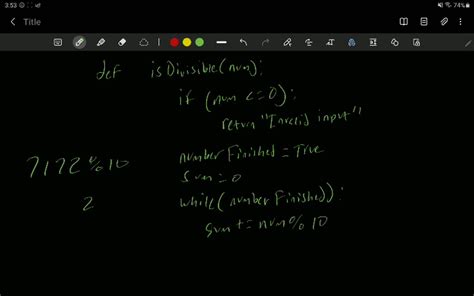 3:53
74%
Title
def isDivisible(num):
if (num <= 0):
return "Invalid input"
7172 % 10
numberFinished = True
sum = 0
2
while(numberFinished)):
sum += num % 10